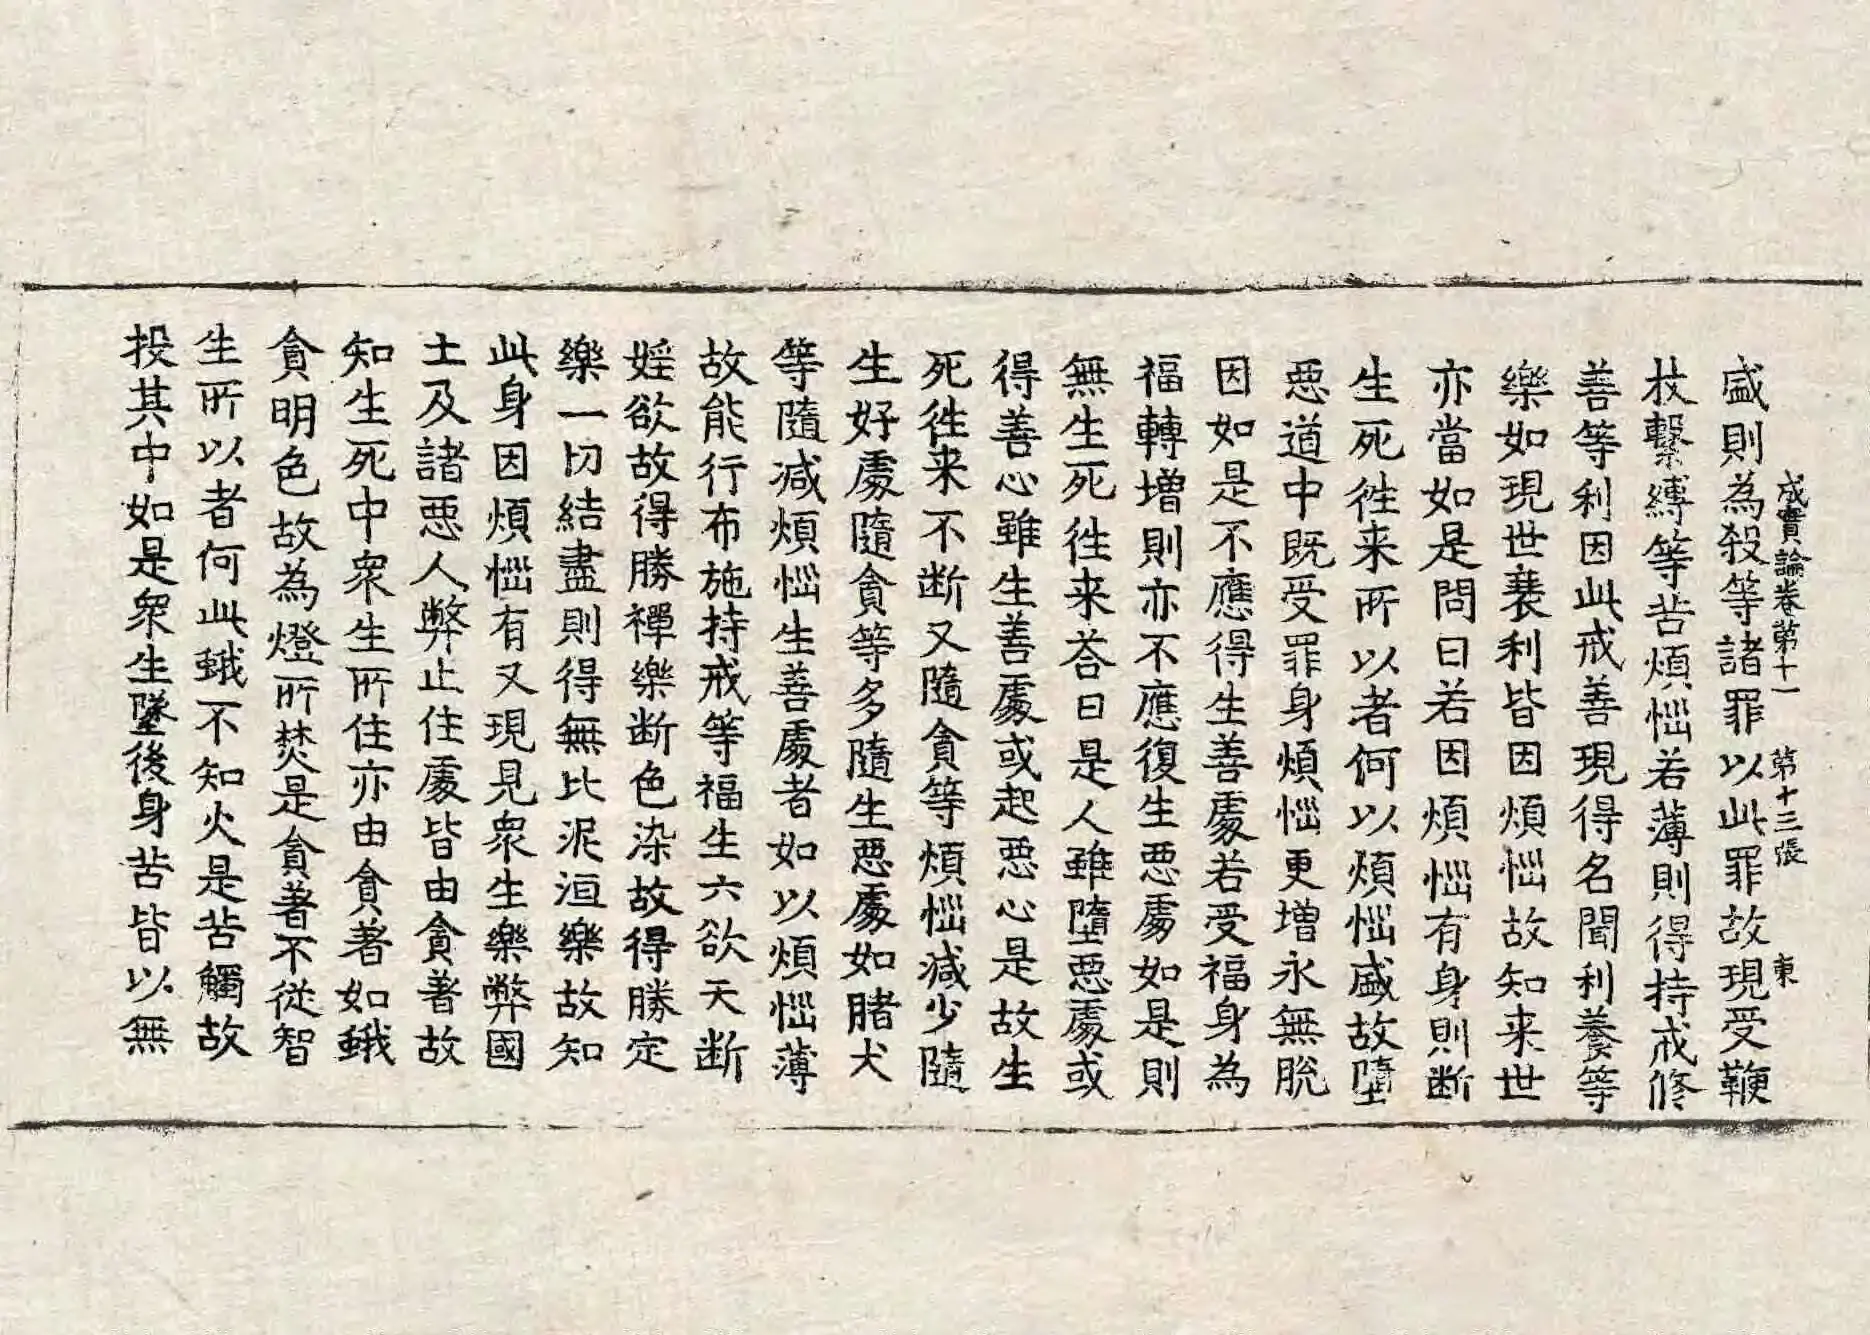 成實論卷第十一 第十三張 東
盛則為殺等諸罪以此罪故現受鞭
杖繫縛等苦煩惱若薄則得持戒修
善等利因此戒善現得名聞利養等
樂如現世衰利皆因煩惱故知来世
亦當如是問曰若因煩惱有身則断
生死往来所以者何以煩惱盛故墮
惡道中既受罪身煩惱更增永無脫
因如是不應得生善處若受福身為
福轉增則亦不應復生惡處如是則
無生死往来荅曰是人雖墮惡處或
得善心雖生善處或起惡心是故生
死往来不断又隨貪等煩惱減少隨
生好處隨貪等多隨生惡處如睹犬
等隨減煩惱生善處者如以煩惱薄
故能行布施持戒等福生六欲天断
婬欲故得勝禪樂断色染故得勝定
樂一切結盡則得無比泥洹樂故知
此身因煩惱有又現見衆生樂弊國
土及諸惡人弊止住處皆由貪著故
知生死中衆生所住亦由貪著如蛾
貪明色故為燈所焚是貪著不從智
生所以者何此蛾不知火是苦觸故
投其中如是衆生墜後身苦皆以無